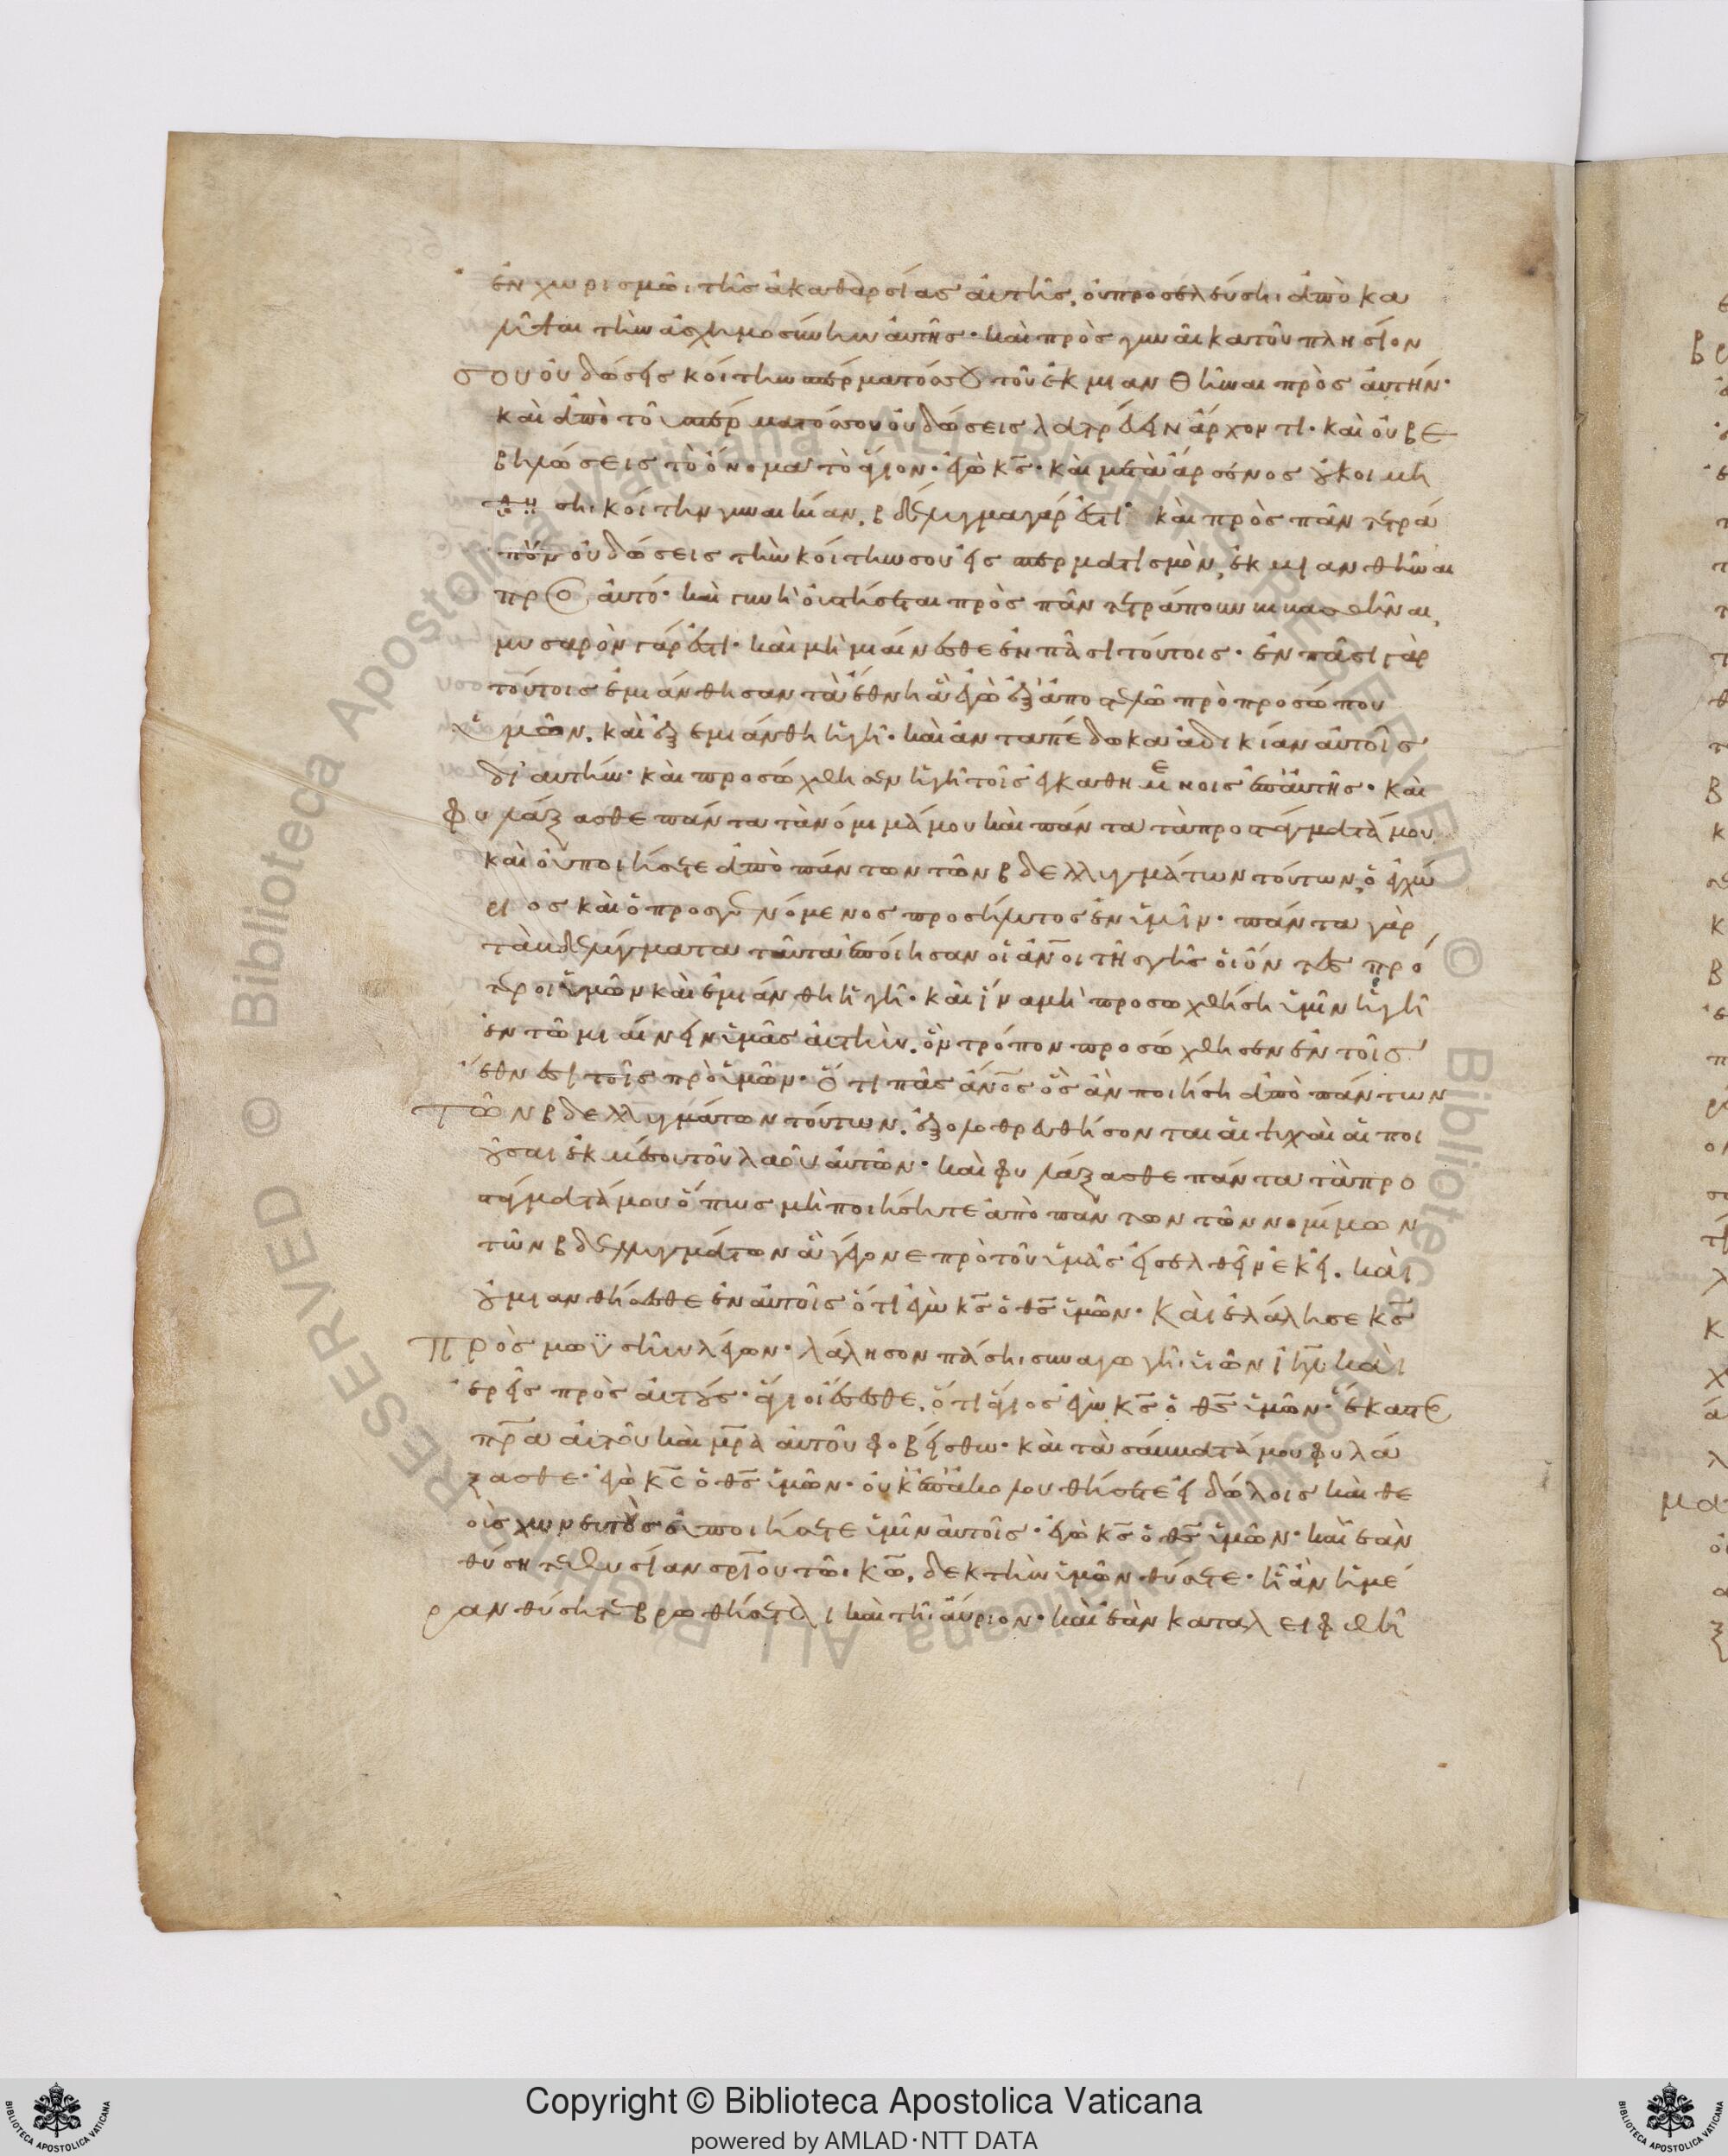 ἐν χωρισμῶι τῆς ἀκαθαρσίας αὐτῆς, οὐ προσελεύσηι ἀποκα
λῦψαι τὴν ἀσχημοσύνην αὐτῆς· καὶ πρὸς γυναῖκα τοῦ πλησίον
σου οὐ δώσεις κοίτην σπέρματός σου τοῦ ἐκμιανθῆναι πρὸς αὐτήν·
καὶ ἀπὸ τοῦ σπέρματός σου οὐ δώσεις λατρεύειν ἄρχοντι· καὶ οὐ βε
βηλώσεις τὸ ὄνομα τὸ ἅγιον· ἐγὼ κς· καὶ μετὰ ἄρσενος οὐ κοιμη
θήσηι κοίτην γυναικίαν, βδέλυγμα γάρ ἐστι· καὶ πρὸς πᾶν τετρά
πουν οὐ δώσεις τὴν κοίτην σου εἰς σπερματισμὸν, ἐκμιανθῆναι
πρὸς αὐτό· καὶ γυνὴ οὐ στήσεται πρὸς πᾶν τετράπουν βιβασθῆναι,
μυσαρὸν γάρ ἐστι· καὶ μὴ μιαίνεσθε ἐν πᾶσι τούτοις· ἐν πᾶσι γὰρ
τούτοις ἐμιάνθησαν τὰ ἔθνη ἃ ἐγὼ ἐξαποστελῶ πρὸ προσώπου
ὑμῶν. καὶ ἐξεμιάνθη ἡ γῆ· καὶ ἀνταπέδωκα ἀδικίαν αὐτοῖς
δι' αυτήν· καὶ προσώχθισεν ἡ γῆ τοῖς ἐγκαθημένοις ἐπ' αὐτῆς· καὶ
φυλάξασθε πάντα τὰ νόμιμά μου καὶ πάντα τὰ προστάγματά μου
καὶ οὐ ποιήσετε ἀπὸ πάντων τῶν βδελλυγμάτων τούτων, ὁ ἐγχώ
ριος καὶ ὁ προσγενόμενος προσήλυτος ἐν ὑμῖν· πάντα γὰρ
τὰ βδελύγματα ταῦτα ἐποίησαν οἱ ἀνοι τῆς γῆς οἱ ὄντες πρό
τεροι ὑμῶν καὶ ἐμιάνθη ἡ γῆ· καὶ ἵνα μὴ προσοχθήση ὑμῖν ἡ γῆ
ἐν τῶ μιαίνειν ὑμᾶς αὐτὴν. ὃν τρόπον προσώχθησεν ἐν τοῖς
ἔθνεσι τοῖς πρὸ ὑμῶν· ὅτι πᾶς ἄνος ὃς ἂν ποιήση ἀπὸ πάντων
τῶν βδελλυγμάτων τούτων. ἐξολοθρευθήσονται αἱ ψυχαὶ αἱ ποι
οῦσαι ἐκ μέσου τοῦ λαοῦ αὐτῶν· καὶ φυλάξασθε πάντα τὰ προ
στάγματά μου ὅπως μὴ ποιήσητε ἀπὸ πάντων τῶν νομίμων
τῶν βδελυγμάτων ἃ γέγονε πρὸ τοῦ ὑμᾶς εἰσελθεῖν ἐκεῖ. καὶ
οὐ μιανθήσεσθε ἐν αὐτοῖς ὅτι ἐγὼ κς ὁ θς ὑμῶν· Καὶ ἐλάλησε κς
πρὸς μωϋσῆν λέγων· λάλησον πάσηι συναγωγῆι υἱῶν ιηλ καὶ
ἐρεῖς πρὸς αὐτούς· ἅγιοι ἔσεσθε, ὅτι ἅγιος ἐγὼ κς ὁ θς ὑμῶν· ἕκαστος
πρα αὐτοῦ καὶ μρα αὐτοῦ φοβείσθω· καὶ τὰ σάββατά μου φυλά
ξασθε· ἐγὼ κς ὁ θς ὑμῶν· οὐκ ἐπακολουθήσετε εἰδώλοις καὶ θε
οὺς χωνευτοὺς οὐ ποιήσετε ὑμῖν αὐτοῖς· ἐγὼ κς ὁ θς ὑμῶν· καὶ ἐὰν
θύσητε θυσίαν σρίου τῶι κω, δεκτὴν ὑμῶν θύσετε· ἧ ἂν ἡμέ
ραν θύσητε βρωθήσεται καὶ τῆι αὔριον· καὶ ἐὰν καταλειφθῆ
Copyright © Biblioteca Apostolica Vaticana
powered by AMLAD·NTT DATA